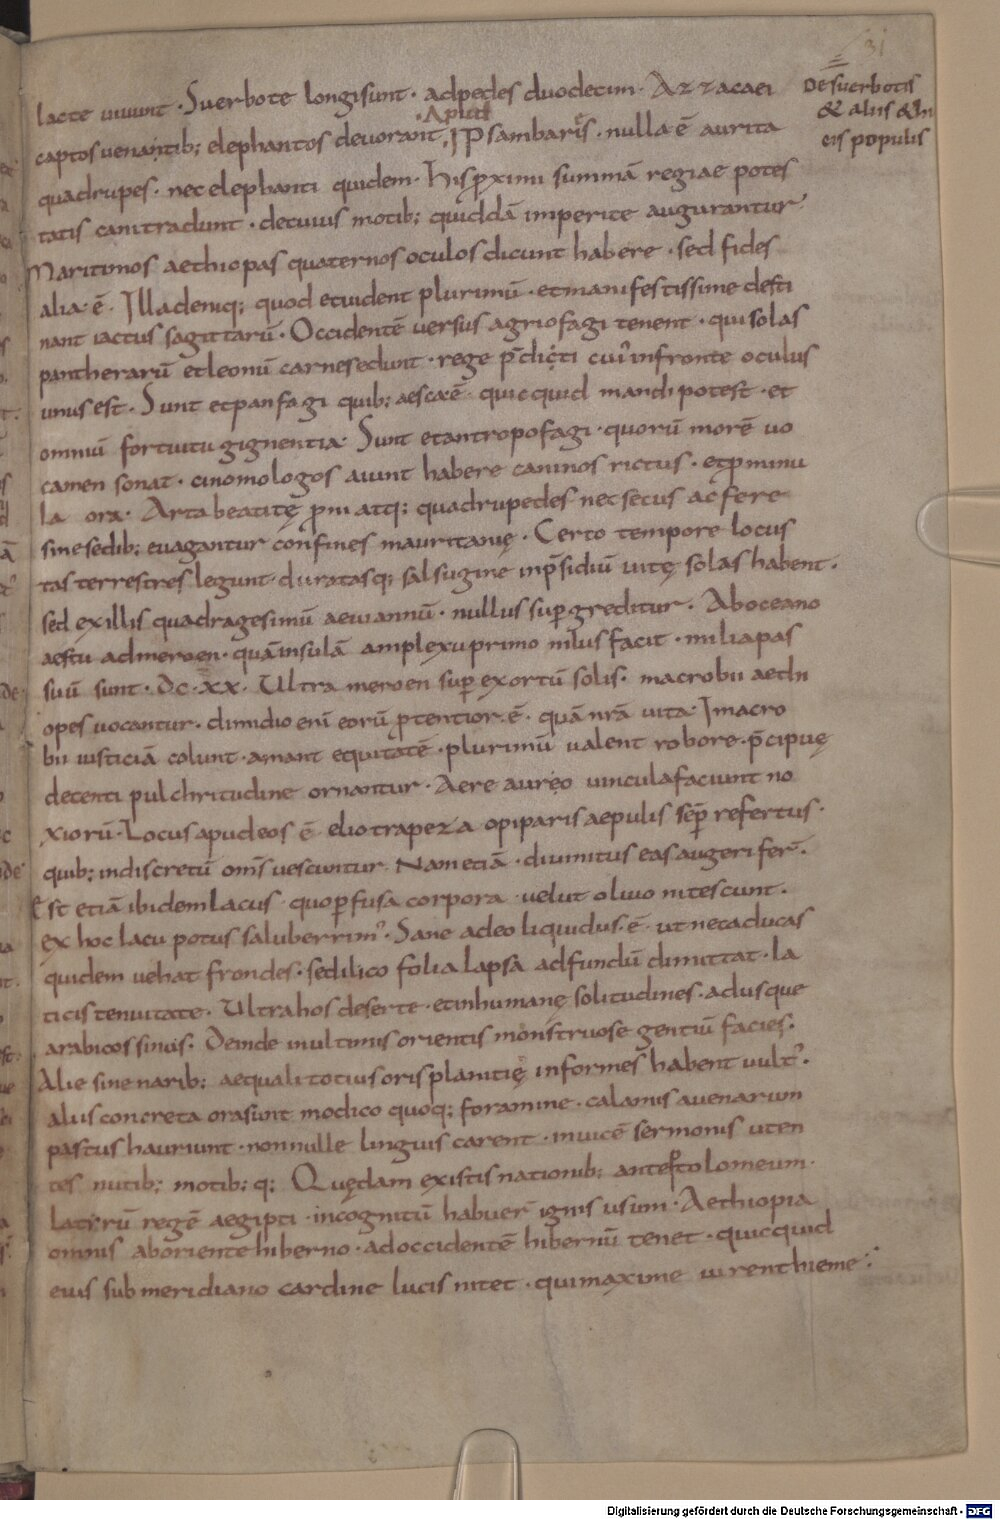 31
lacte uiuunt · Suerbote longi sunt · ad pedes duodecim · Azzacaei
De suerbotis
& aliis &hi
eis populis
captos uenantib; elephantos deuorant, · Apud Psambaris · nulla ē aurita
quadrupes · nec elephanti quidem · His proximi summā regiae potes
tatis cani tradunt · de cuius motib; quiddā imperite augurantur
Maritimos aethiopas quaternos oculos dicunt habere · sed fides
alia ē · Illa deniq; quod et uident plurimū · et manifestissime desti
nant iactus sagittarū · Occidentē uersus agriofagi tenent · qui solas
pantherarū et leonū carnes edunt · rege p̄diçti cui' in fronte oculus
unus est · Sunt et panfagi quib; aesca ē · quicquid mandi potest · et
omniū fortuitu gignentia · Sunt et antropofagi · quorū morē uo
camen sonat · cinomologos aiunt habere caninos rictus · et ꝓminu
la ora · Artabeatitę ꝓni atq; quadrupedes nec secus ac fere
sine sedib; euagantur confines mauritanię · Certo tempore locus
tas terrestres legunt · duratasq; salsugine in p̄sidiū uitę solas habent ·
sed ex illis quadragesimū aeui annū · nullus sup̄greditur · Ab oceano
aestu ad meroen · quā insulā amplexu primo nilus facit · milia pas
suū sunt · DC · XX · Ultra meroen sup̄ exortū solis · macrobii aethi
opes uocantur · dimidio enī eorū ꝓtentior · ē · quā nr̄a uita · I macro
bii iusticiā colunt · amant equitatē · plurimū ualent robore · p̄cipuę
decenti pulchritudine ornantur · Aere aureo uincula faciunt no
xiorū · Locus apud eos ē eliotrapeza opiparis aepulis sēp refertus ·
quib; indiscretū om̄s uescuntur · Nam etiā · diuinitus eas augeri fer̄ ·
Est etiā ibidem lacus · quo ꝑfusa corpora · uelut oliuo nitescunt ·
ex hoc lacu potus saluberrim' · Sane adeo liquidus · ē · ut nec aducas
quidem uehat frondes · sed ilico folia lapsa ad fundū dimittat · la
ticis tenuitate · Ultra hos deserte · et inhumanę solitudines · adusque
arabicos sinus · Deinde in ultimis orientis monstruose gentiū facies ·
Alie sine narib; aequali totius oris planitię informes habent uult' ·
aliis concreta ora sunt modico quoq; foramine · calamis auenarum
pastus hauriunt · nonnulle linguis carent · in uicē sermonis uten
tes nutib; motib; q; Quędam ex istis nationib; ante ptolomeum
laturū regē aegipti · incognitū habuer̄ ignis usum · Aethiopia
omnis ab oriente hiberno · ad occidentē hibernū tenet · quicquid
eius sub meridiano cardine lucis nitet · qui maxime uirent hieme :·
Digitalisierung gefördert durch die Deutsche Forschungsgemeinschaft - DFG